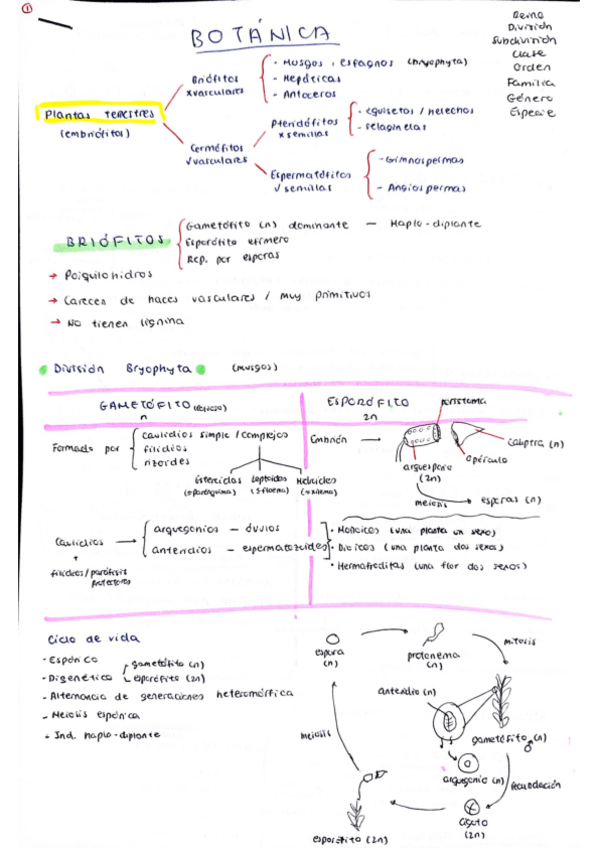 ①
BOTÁNICA
Reino
División
Subdivisión
Clase
Orden
Familia
Género
Especie
Plantas terrestres
(embriófitos)
Briófitos
x vasculares
• Musgos, esfagnos (bryophyta)
- Hepáticas
- Antoceros
Cormófitos
√ vasculares
Pteridófitos
x semillas
- equisetos / helechos
- selaginelas
Espermatófitos
√ semillas
- Gimnospermas
- Angiospermas
BRIÓFITOS
Gametófito (n) dominante — Haplo-diplonte
Esporófito efímero
Rep. por esporas
→ Poiquilohidros
→ Carecen de haces vasculares / muy primitivos
→ No tienen lignina
División Bryophyta (musgos)
GAMETÓFITO
n
ESPORÓFITO
2n
Formado por
caulidios simple / complejos
filidios
rizoides
Estereidas
(≈parénquima)
Leptoides
(≈floema)
Hidroides
(≈xilema)
Embrión →
peristoma
caliptra (n)
opérculo
arquesporio
(2n)
meiosis
esporas (n)
Caulidios
+
filidios/paráfisis
protectores
arquegonios — óvulos
anteridios — espermatozoides
• Monoicos (una planta un sexo)
• Dioicos (una planta dos sexos)
• Hermafroditas (una flor dos sexos)
Ciclo de vida
- Espónico
- Digenético
gametófito (n)
esporófito (2n)
- Alternancia de generaciones heteromórfica
- Meiosis espórica
- Ind. haplo-diplonte
espora
(n)
protonema
(n)
mitosis
anteridio (n)
gametófito (n)
♂
arquegonio (n)
fecundación
cigoto
(2n)
esporófito (2n)
meiosis